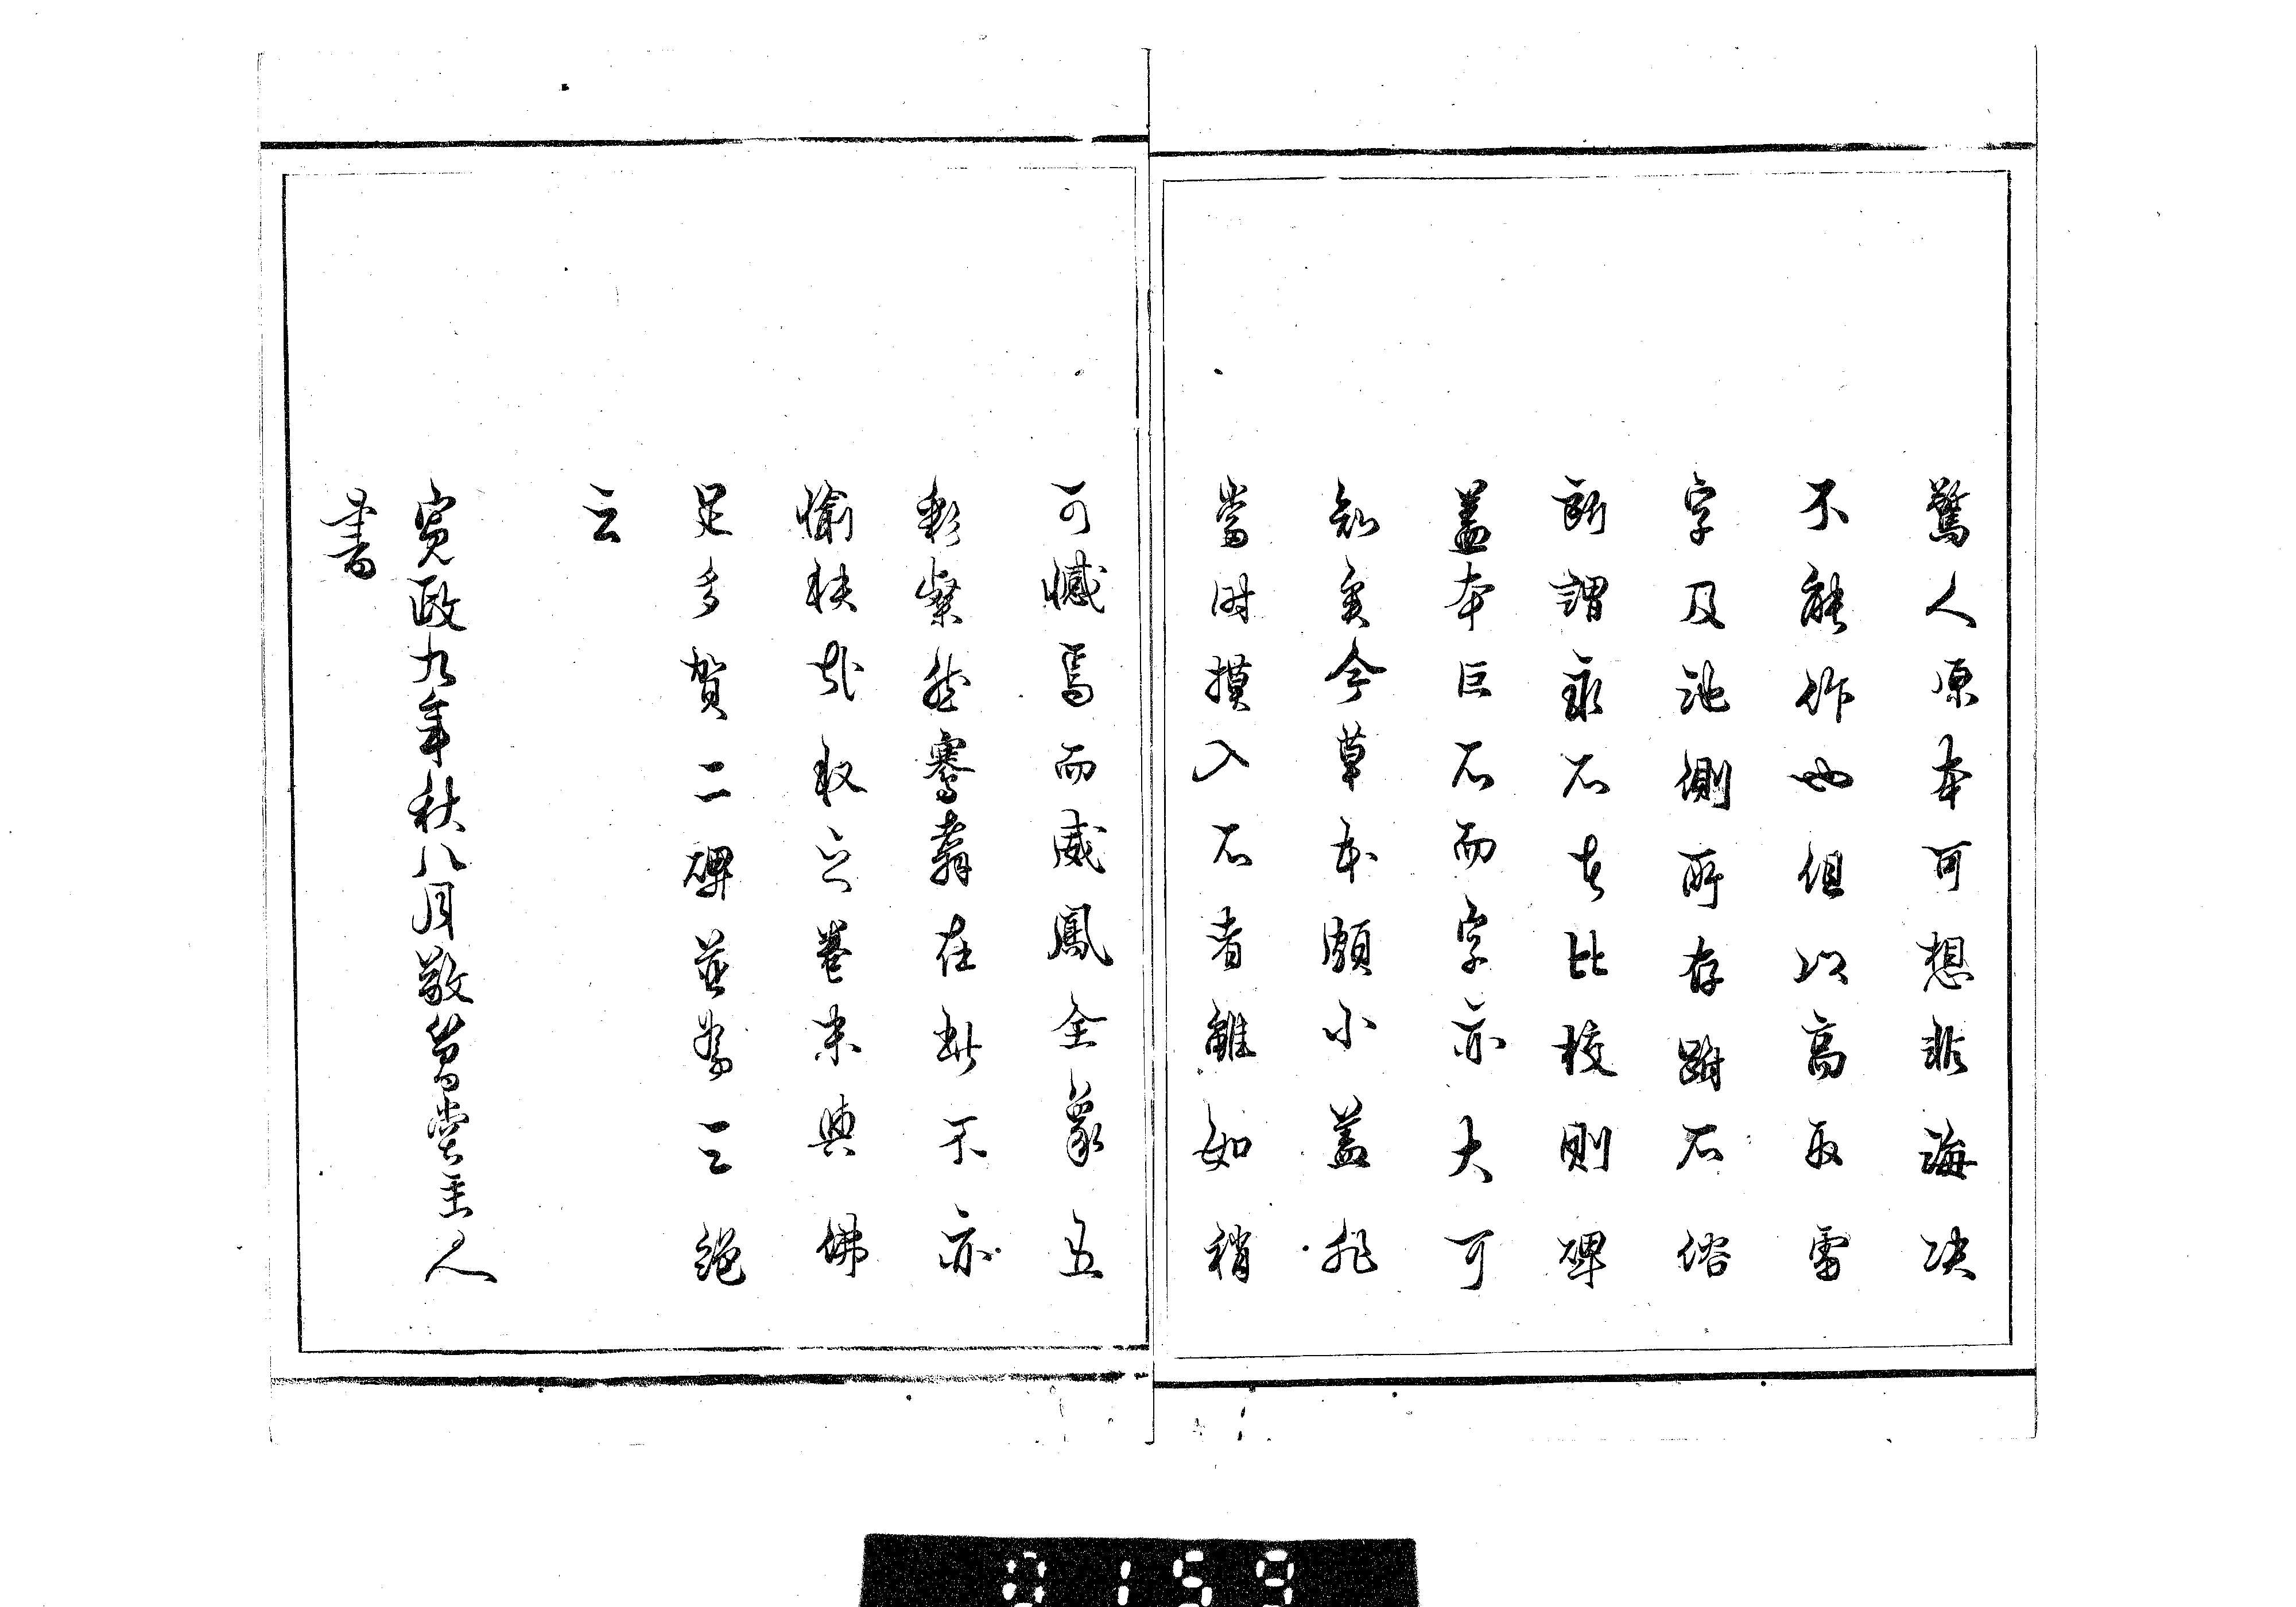 驚人原本可想非海决
不能作也但以高取雷
字及池側所存跗石俗
所謂永石者比校則碑
蓋本巨石而字亦大可
知矣今草本頗小蓋非
當时摸入石者雖如稍
可憾焉而威鳳全篆五
彩粲然騫翥在斯不亦
愉快哉収之巻末與佛
足多賀二碑並為三絶
云
寛政九年秋八月敬義堂主人
書
0159